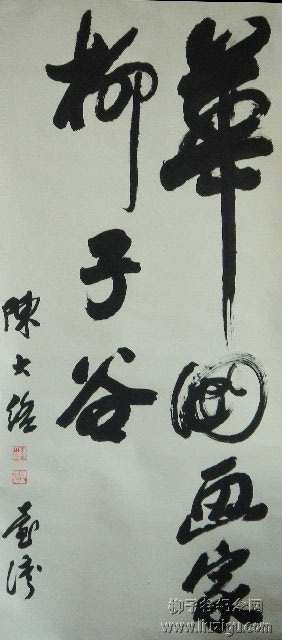 華國画家
柳子谷
陳大絡
臺灣
柳子谷纪念网
www.liuzigu.com